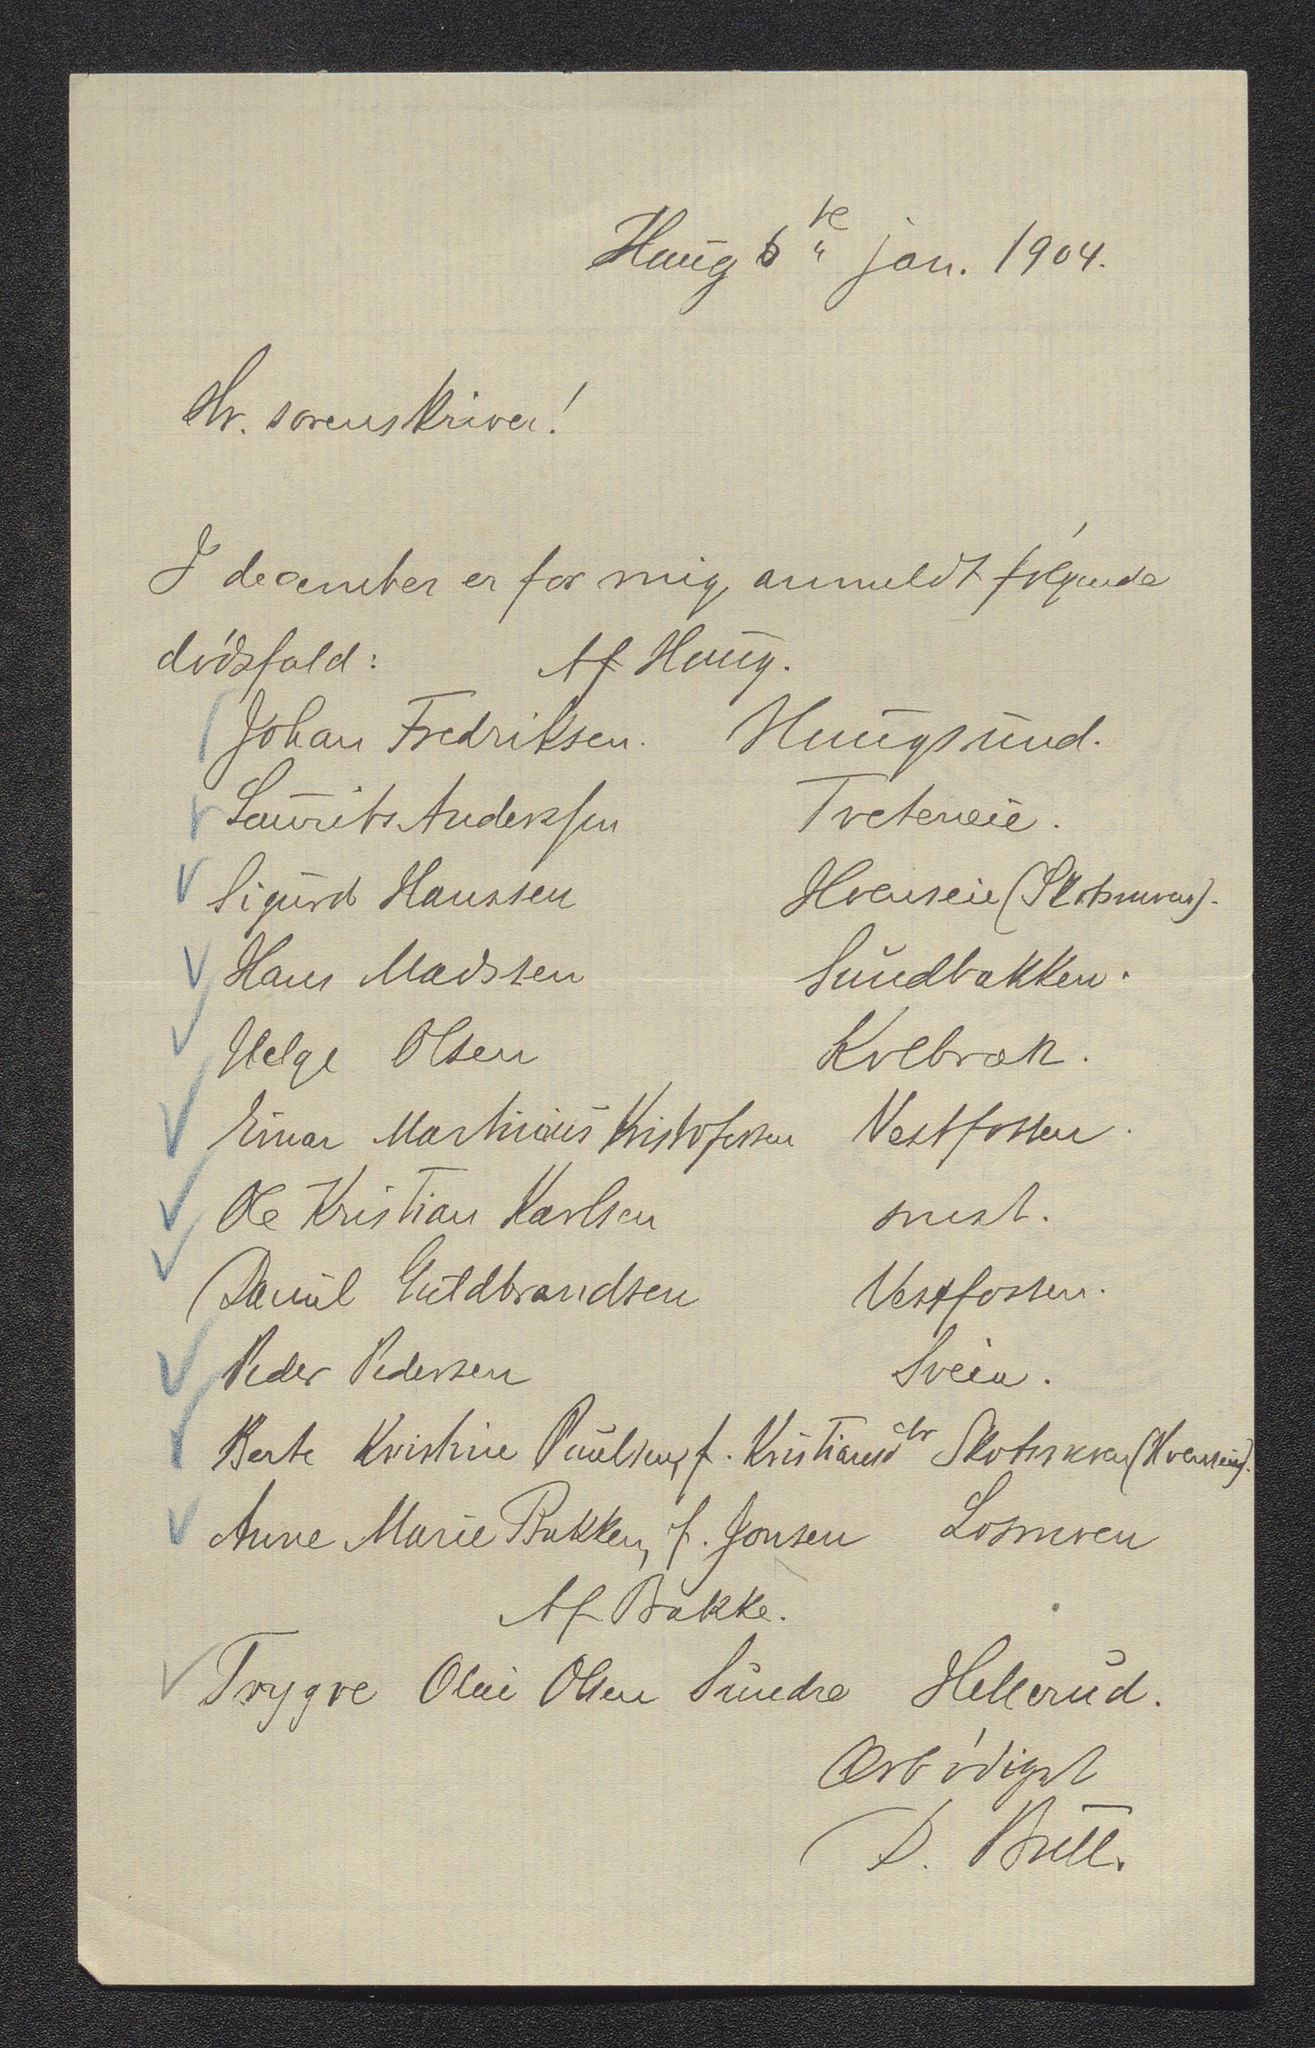 Haug 6te jan. 1904.
Hr. sorenskriver!
I december er for mig anmeldt følgende
dødsfald: Af Haug.
Johan Fredriksen. Haugsund.
Laurits Anderssen Tveteneie.
Sigurd Hanssen Hvenseie (Skotsmoen).
Hans Madssen Sundbakken.
Helge Olsen Kolbræk.
Einar Martinius Kristofersen Vestfossen.
Ole Kristian Karlsen
Daniel Guldbrandsen Vestfossen.
Peder Pedersen Sveia.
Berte Kristine Paulsen, f. Kristiansdtr
Anne Marie Bakken, f. Jonsen Losmoen
Af Bakke.
Trygve Olai Olsen Sundre Hellerud.
Ærbødigst
D. Bull.